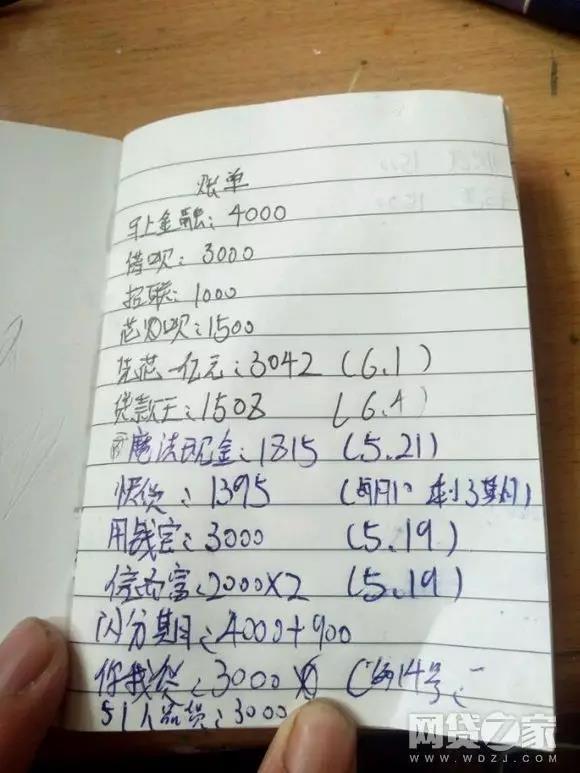 账单
马上金融：4000
借呗：3000
招联：1000
芯份呗：1500
先花一亿元：3042 (6.1)
贷款王：1508 (6.4)
魔法现金：1815 (5.21)
快贷：1395 (每月 剩3期)
用钱宝：3000 (5.19)
信而富：2000×2 (5.19)
闪分期：4000+900
你我贷：3000 (每14号
51人品贷：3000
网贷之家
WWW.WDZJ.COM